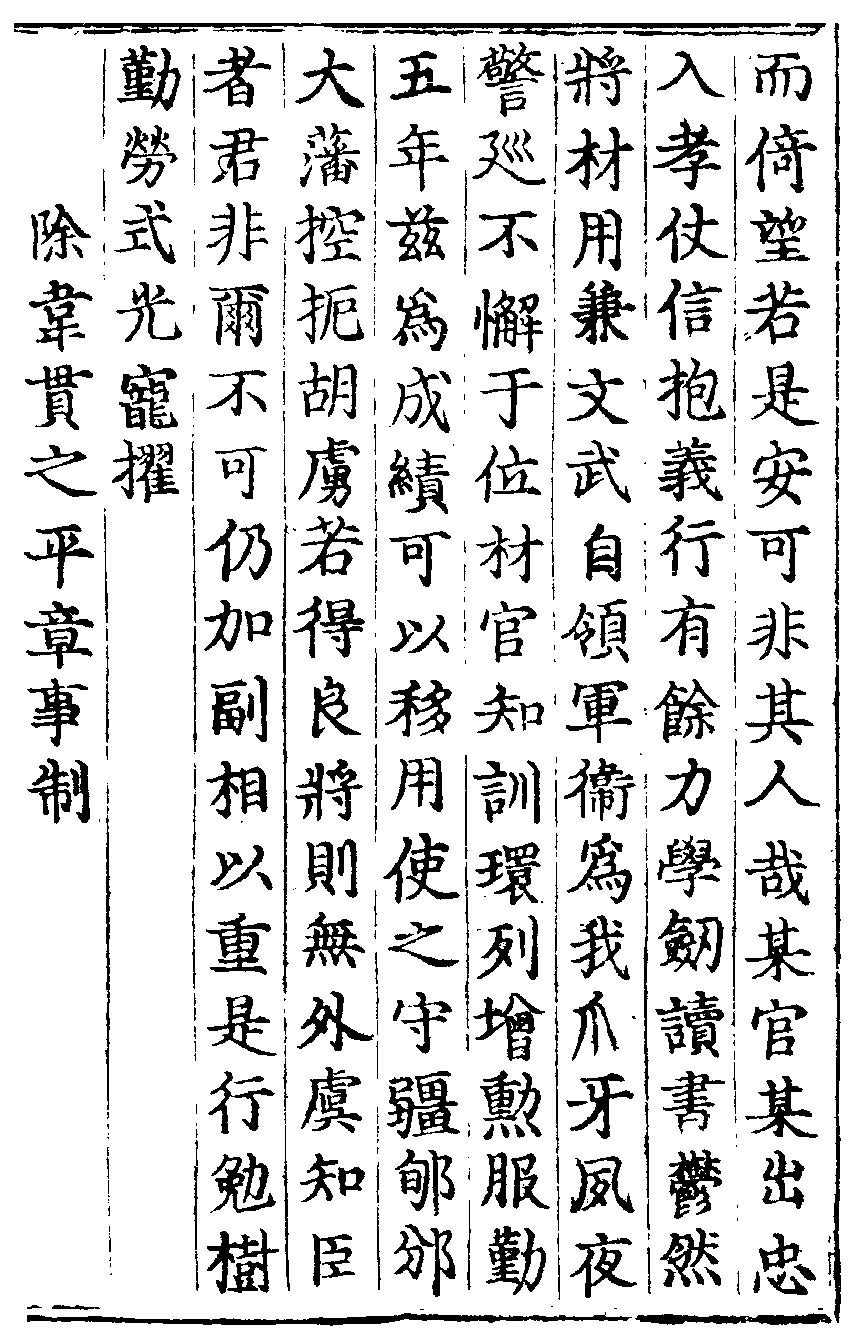 而倚望若是安可非其人哉某官某出忠
入孝仗信抱義行有餘力學劒讀書鬱然
將材用兼文武自領軍衞爲我爪牙夙夜
警廵不懈于位材官知訓環列增勲服勤
五年兹爲成績可以移用使之守疆郇邠
大藩控扼胡虜若得良將則無外虞知臣
者君非爾不可仍加副相以重是行勉樹
勤勞式光寵擢
除韋貫之平章事制